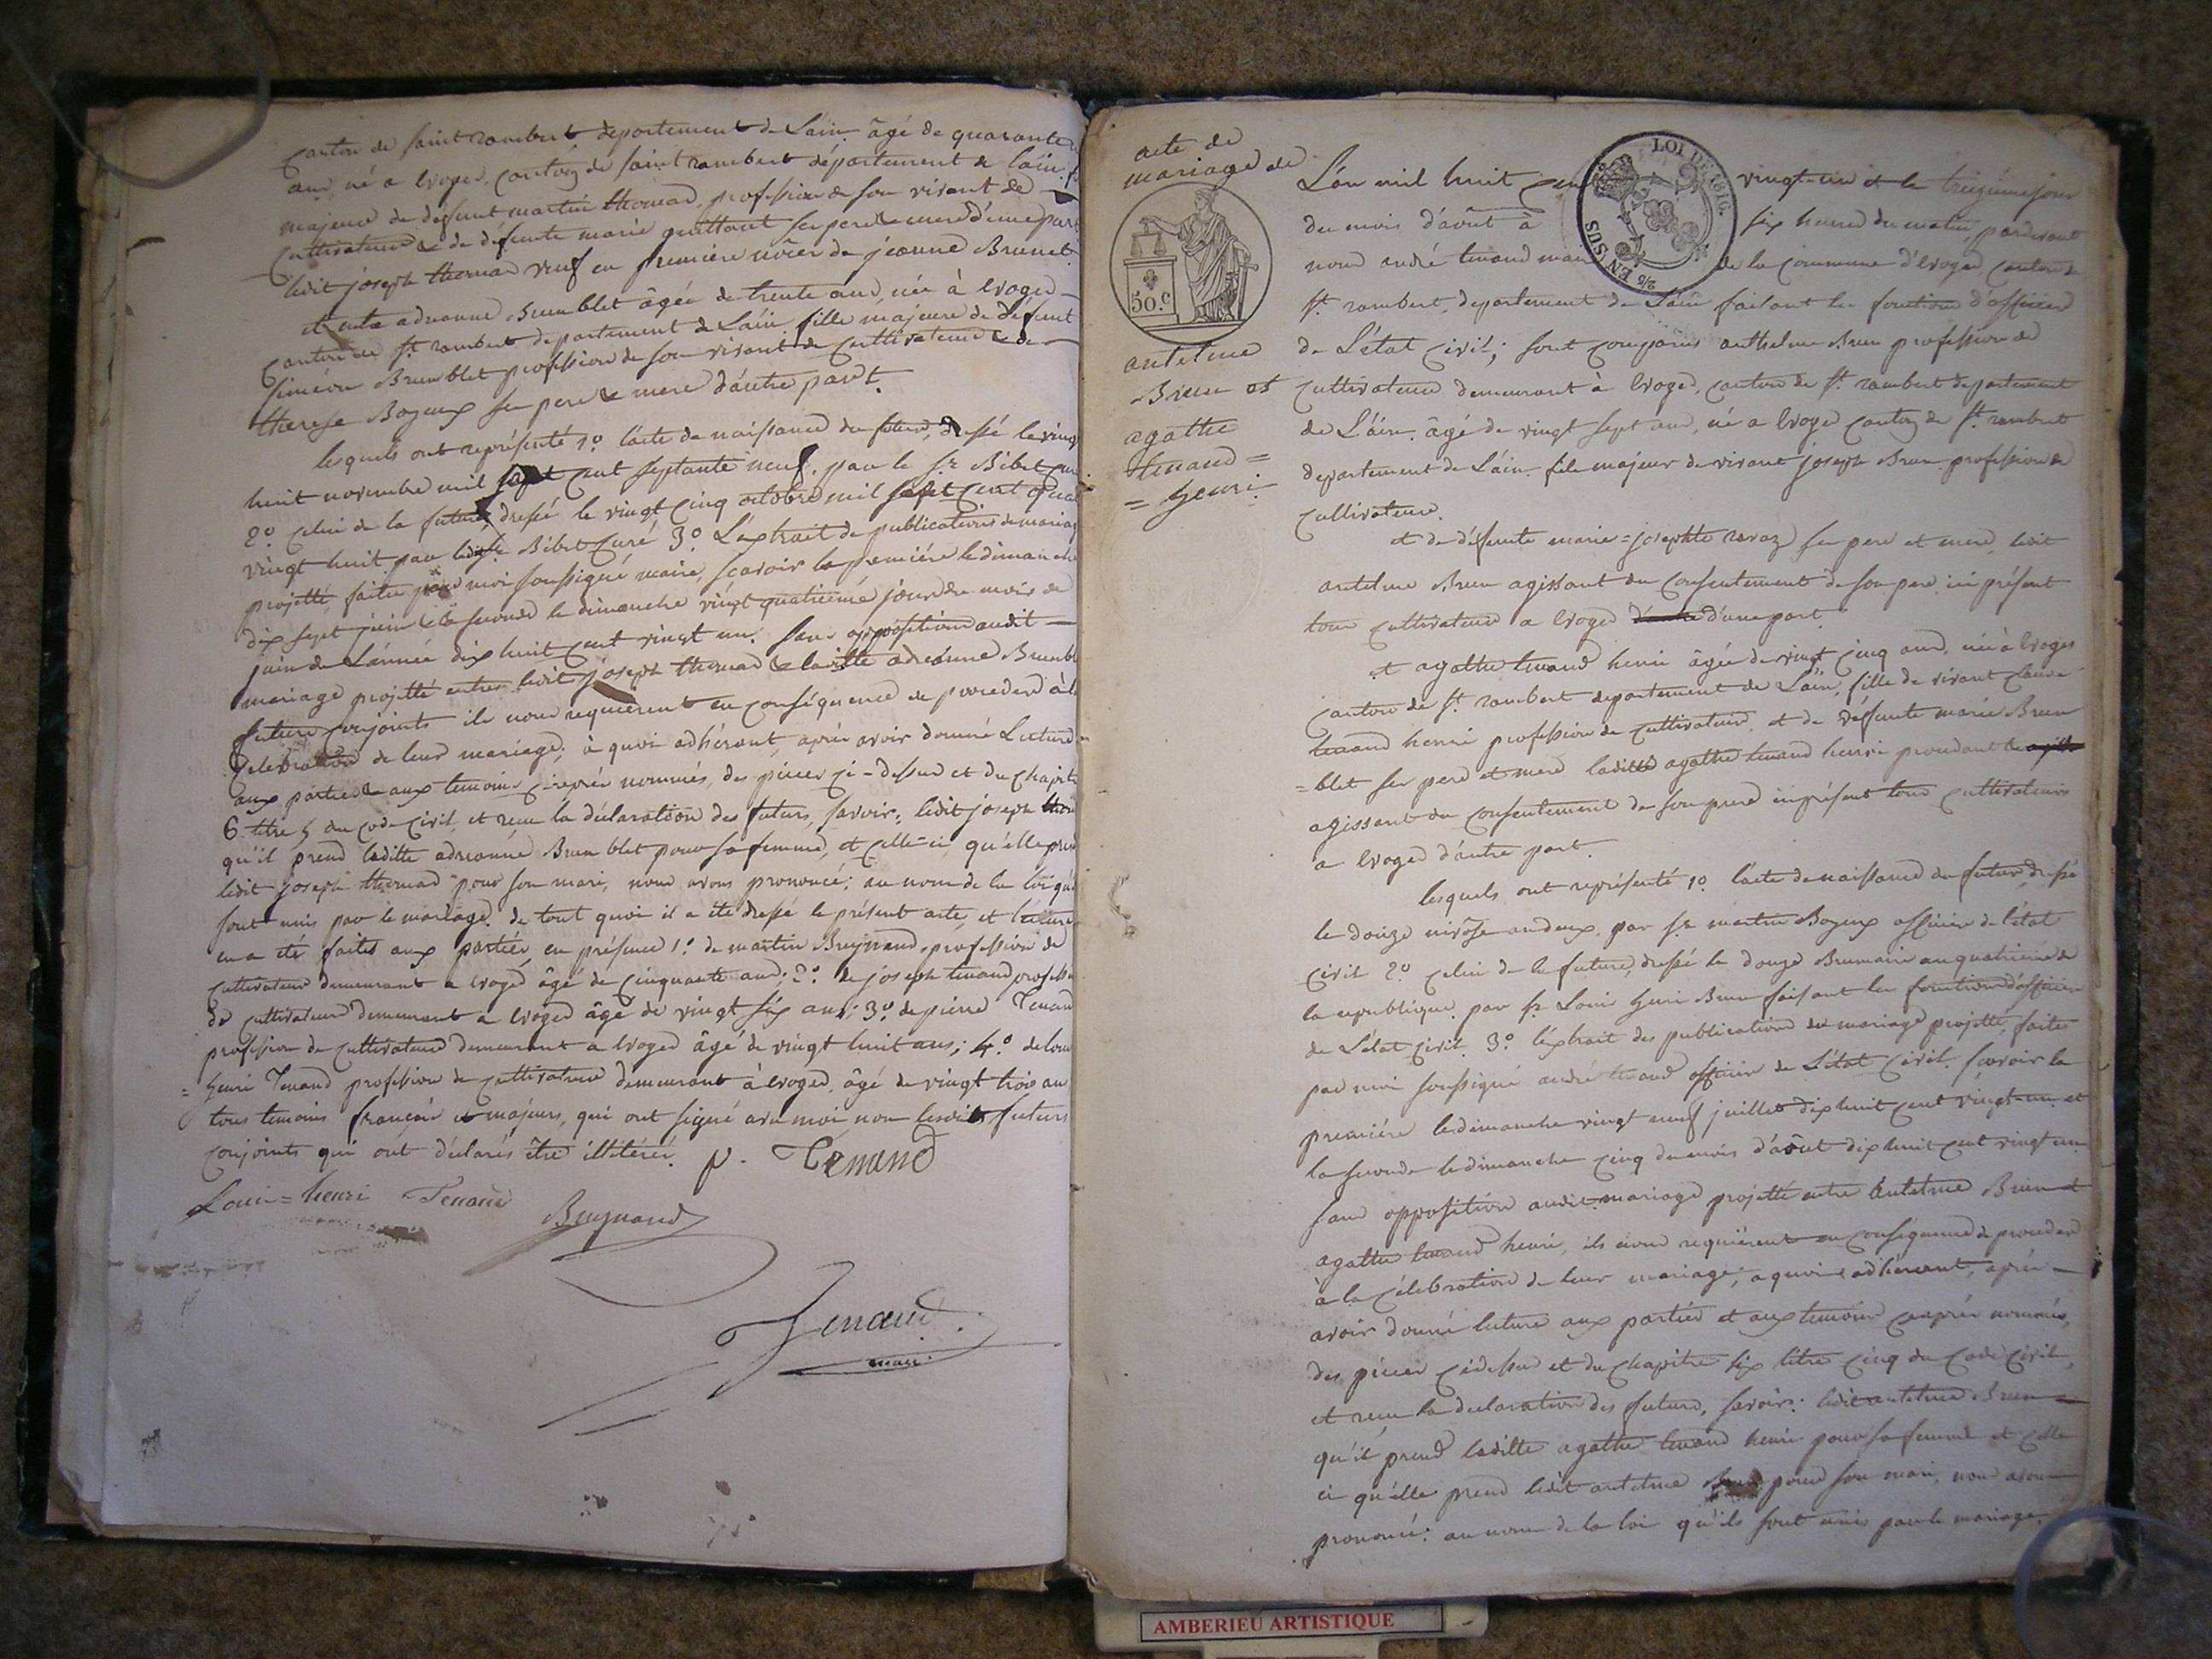 canton de saint rambert departement de Láin âgé de quarante
ans né a Evoges, canton de saint rambert département de láin fils
majeur de défunt martin thomas, profession de son vivant de
cultivateur & de défunte marie guittant ses pere & mere d'une part
ledit joseph thomas veuf en premiere nôces de jeanne Brunet
et adreanne Brun blet âgée de trente ans, née à Evoges
canton de St. rambert departement de Láin fille majeure de défunt
siméon Brun blet profession de son vivant de cultivateur & de
therese Bozeux ses pere & mere d'autre part.
lesquels ont représenté 1o. l'acte de naissance du futur, dressé le vingt
huit novembre mil sept cent septante neuf, par le Sr. Bibet curé
2o. celui de la future, dressé le vingt cinq octobre mil sept cent quatre
vingt huit par ledit Sr Bibet Curé 3o. L'extrait de publications de mariage
projetté, faites par moi soussigné maire, scavoir la premiére le dimanche
dix sept juin & la seconde le dimanche vingt quatrième jour du mois de
juin de L'année dix huit cent vingt un. sans opposition audit
mariage projetté entre ledit joseph thomas & laditte adréanne Brun blet
futurs conjoints ils nous requierent en conséquence de proceder à la
celebration de leur mariage, à quoi adhérant, après avoir donné Lecture
aux parties & aux temoins ci-après nommés, des pieces ci-dessus et du chapitre
6 titre 5 du code civil, et recu la déclaration des futurs, savoir; ledit joseph thomas
qu'il prend laditte adreanne Brun blet pour sa femme, et celle-ci, qu'elle prend
ledit joseph thomas pour son mari, nous avons prononcé; au nom de la loi qu'ils
sont unis par le mariage. de tout quoi il a été dressé le présent acte, et lecture
en a été faites aux parties, en présence 1o. de martin Buynand, profession de
cultivateur demeurant a Evoges âgé de cinquante ans; 2o. de joseph tenand profession
de cultivateur demeurant a Evoges âgé de vingt six ans; 3o. de pierre Tenand
profession de cultivateur demeurant a Evoges âgé de vingt huit ans; 4o. de louis
= henri Tenand profession de cultivateur demeurant à Evoges, âgé de vingt trois ans
tous temoins français et majeurs, qui ont signé avec moi non lesdits futurs
conjoints qui ont déclarés être illitérés. p. Tenand
Louis=henri Tenand Buynand
Tenand
maire
acte de
mariage de
50.c
antelme
Brun et
agathe
tenand =
= henri
LOI DE 1816.
2/5 EN SUS
L'an mil huit cent vingt-un et le treizième jour
du mois d'août à six heures du matin, pardevant
nous andré tenand maire de la commune d'Evoges canton de
St. rambert, departement de Láin faisant les fonctions d'officier
de L'état civil; sont comparus anthelme Brun profession de
cultivateur demeurant à Evoges, canton de St. rambert departement
de L'áin. âgé de vingt sept ans, né a Evoges canton de St. rambert
departement de Láin fils majeur de vivant joseph Brun profession de
cultivateur.
et de défunte marie=josephte ravaz ses pere et mere, ledit
antelme Brun agissant du consentement de son pere ici présent
tous cultivateurs a Evoges d'une part.
et agathe tenand henri âgée de vingt cinq ans, née à Evoges
canton de St. rambert departement de Láin, fille de vivant claude
tenand henri profession de cultivateur et de défunte marie Brun
=blet ses pere et mere laditte agathe tenand henri procedant
agissant du consentement de son pere ici présent tous cultivateurs
a Evoges d'autre part.
lesquels ont représenté 1o. l'acte de naissance du futur, dressé
le douze nivôse an deux, par Sr. martin Bozeux officier de l'état
civil 2o. celui de la future, dressé le douze Brumaire an quatrième de
la republique par Sr. Louis henri Brun faisant les fonctions d'officier
de L'état civil. 3o. l'extrait des publications du mariage projetté, faites
par moi soussigné andré tenand officier de L'état civil. scavoir la
premiére le dimanche vingt neuf juillet dix huit cent vingt-un et
la seconde le dimanche cinq du mois d'août dix huit cent vingt un
sans opposition audit mariage projetté entre antelme Brun et
agathe tenand henri, ils nous requièrent en conséquence de proceder
à la célébration de leur mariage; a quoi adhérent, après
avoir donné lecture aux parties et aux temoins ciaprès nommés,
des pieces cidessus et du chapitre six titre cinq du code civil,
et recu la declaration des futurs, savoir: ledit antelme Brun
qu'il prend laditte agathe tenand henri pour sa femme et celle
ci qu'elle prend ledit antelme Brun pour son mari, nous avons
prononcé: au nom de la loi qu'ils sont unis par le mariage.
AMBERIEU ARTISTIQUE